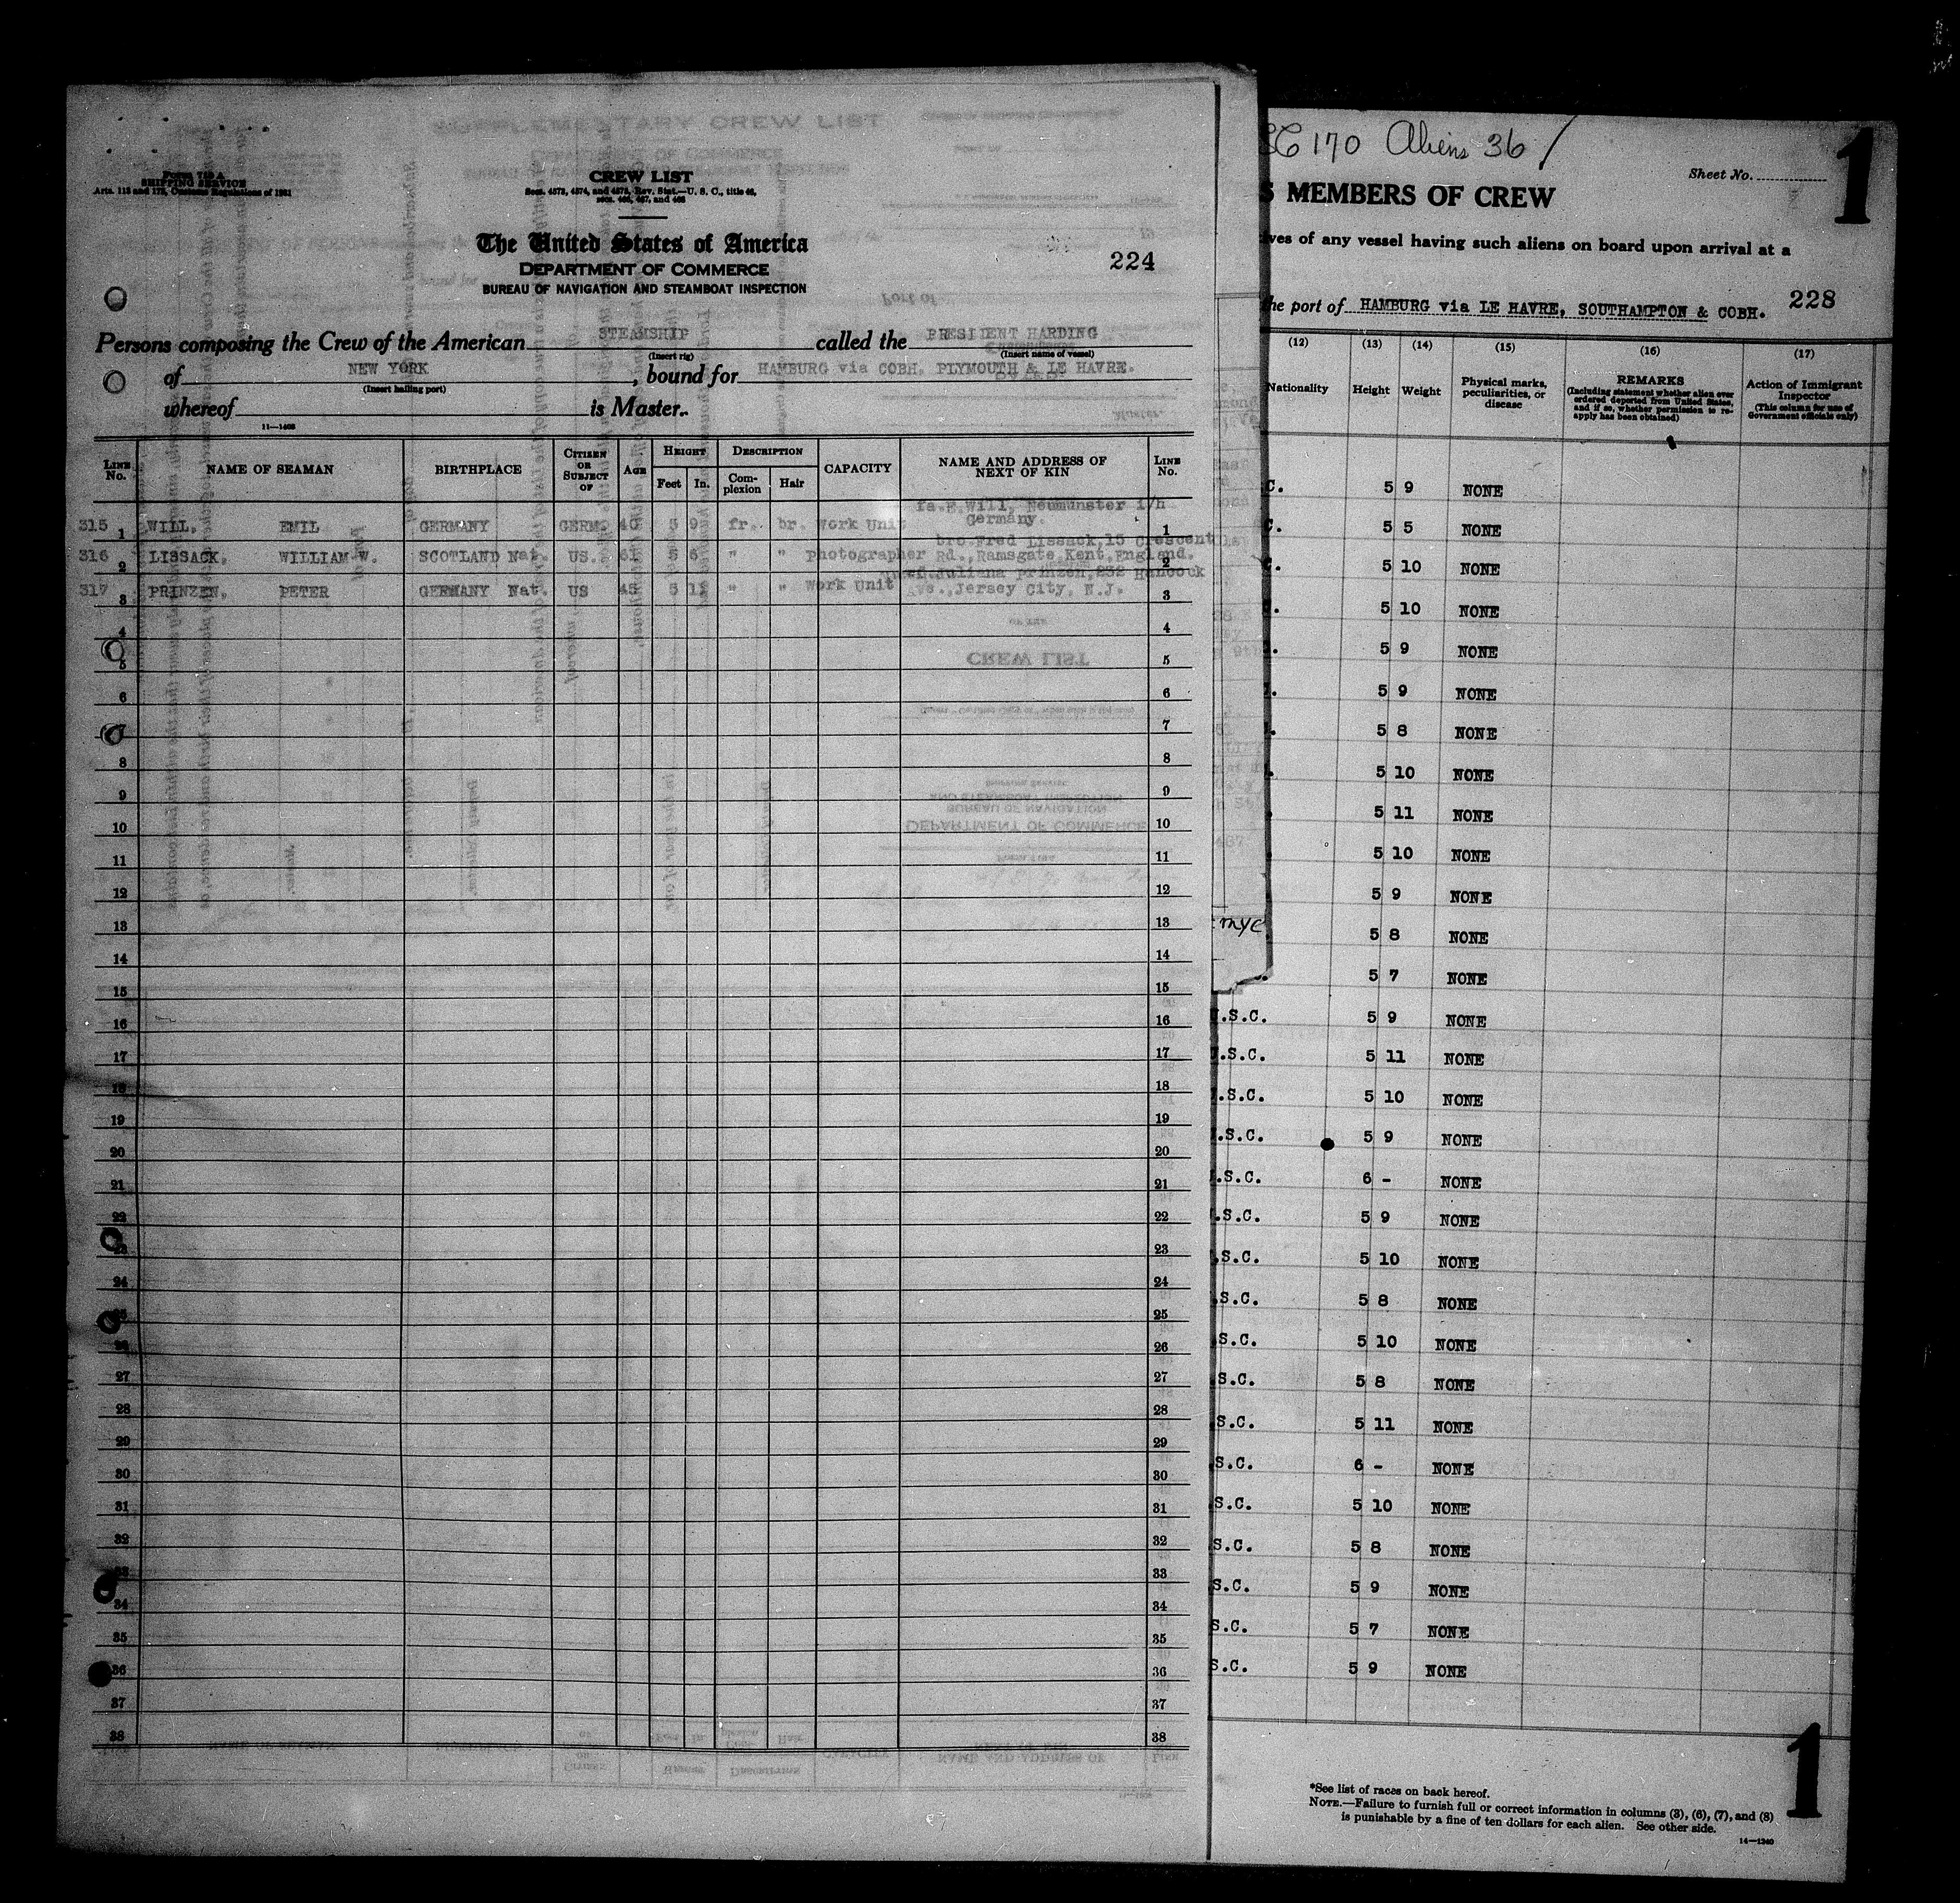 Form 710 A
SHIPPING SERVICE
Arts. 113 and 175, Customs Regulations of 1931
CREW LIST
Secs. 4573, 4574, and 4575, Rev. Stat.—U. S. C., title 46,
secs. 466, 467, and 468
The United States of America
DEPARTMENT OF COMMERCE
BUREAU OF NAVIGATION AND STEAMBOAT INSPECTION
224
Persons composing the Crew of the American STEAMSHIP called the PRESIDENT HARDING
(Insert rig) (Insert name of vessel)
of NEW YORK, bound for HAMBURG via COBH, PLYMOUTH & LE HAVRE.
(Insert hailing port)
whereof is Master.
11—1408
LINE No. NAME OF SEAMAN BIRTHPLACE CITIZEN OR SUBJECT OF AGE HEIGHT Feet In. DESCRIPTION Complexion Hair CAPACITY NAME AND ADDRESS OF NEXT OF KIN LINE No.
fa.E.Will, Neumunster i/h
315 1 WILL, EMIL GERMANY GERM. 40 5 9 fr. br. Work Unit Germany. 1
bro Fred Lissack,15 Crescent
316 2 LISSACK, WILLIAM W. SCOTLAND Nat. US. 61 5 6 " " Photographer Rd.,Ramsgate Kent,England. 2
Juliana Prinzen,232 Hancock
317 3 PRINZEN, PETER GERMANY Nat. US 45 5 11 " " Work Unit Ave.,Jersey City, N.J. 3
4 4
5 5
6 6
7 7
8 8
9 9
10 10
11 11
12 12
13 13
14 14
15 15
16 16
17 17
18 18
19 19
20 20
21 21
22 22
23 23
24 24
25 25
26 26
27 27
28 28
29 29
30 30
31 31
32 32
33 33
34 34
35 35
36 36
37 37
38 38
170 Aliens 36 /
Sheet No.
1
S MEMBERS OF CREW
ves of any vessel having such aliens on board upon arrival at a
the port of HAMBURG via LE HAVRE, SOUTHAMPTON & COBH.
228
(12) (13) (14) (15) (16) (17)
Nationality Height Weight Physical marks, peculiarities, or disease REMARKS (Including statement whether alien ever ordered deported from United States, and if so, whether permission to reapply has been obtained) Action of Immigrant Inspector (This column for use of Government officials only)
C. 5 9 NONE
C. 5 5 NONE
C. 5 10 NONE
5 10 NONE
5 9 NONE
5 9 NONE
5 8 NONE
5 10 NONE
5 11 NONE
5 10 NONE
5 9 NONE
nyc 5 8 NONE
5 7 NONE
.S.C. 5 9 NONE
.S.C. 5 11 NONE
.S.C. 5 10 NONE
.S.C. 5 9 NONE
.S.C. 6 - NONE
.S.C. 5 9 NONE
.S.C. 5 10 NONE
.S.C. 5 8 NONE
S.C. 5 10 NONE
S.C. 5 8 NONE
S.C. 5 11 NONE
S.C. 6 - NONE
S.C. 5 10 NONE
S.C. 5 8 NONE
S.C. 5 9 NONE
S.C. 5 7 NONE
S.C. 5 9 NONE
*See list of races on back hereof.
NOTE.—Failure to furnish full or correct information in columns (3), (6), (7), and (8)
is punishable by a fine of ten dollars for each alien. See other side.
14—1240
1